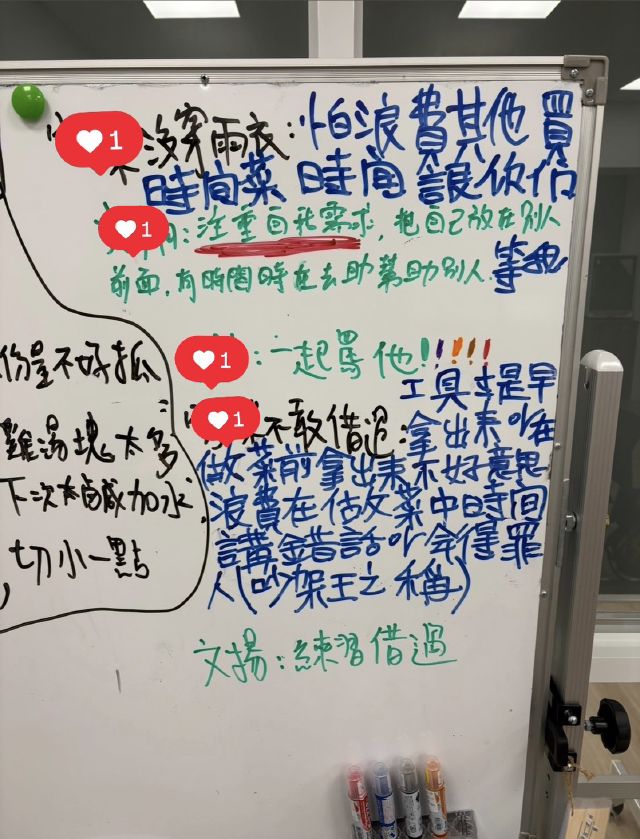 1
沒穿雨衣:怕浪費其他買
時間菜 時間 讓你們
1
:注重自我需求,把自己放在別人
前面,有時間時在去助幫助別人.等我
份量不好抓
1
:一起罵他!!!!!
工具李是早
1
不敢借過:拿出來
雞湯塊太多
做菜前拿出來不好意思
下次太鹹加水
浪費在 做菜中時間
講錯話 會得罪
切小一點
人(吵架王之稱)
文揚:練習借過